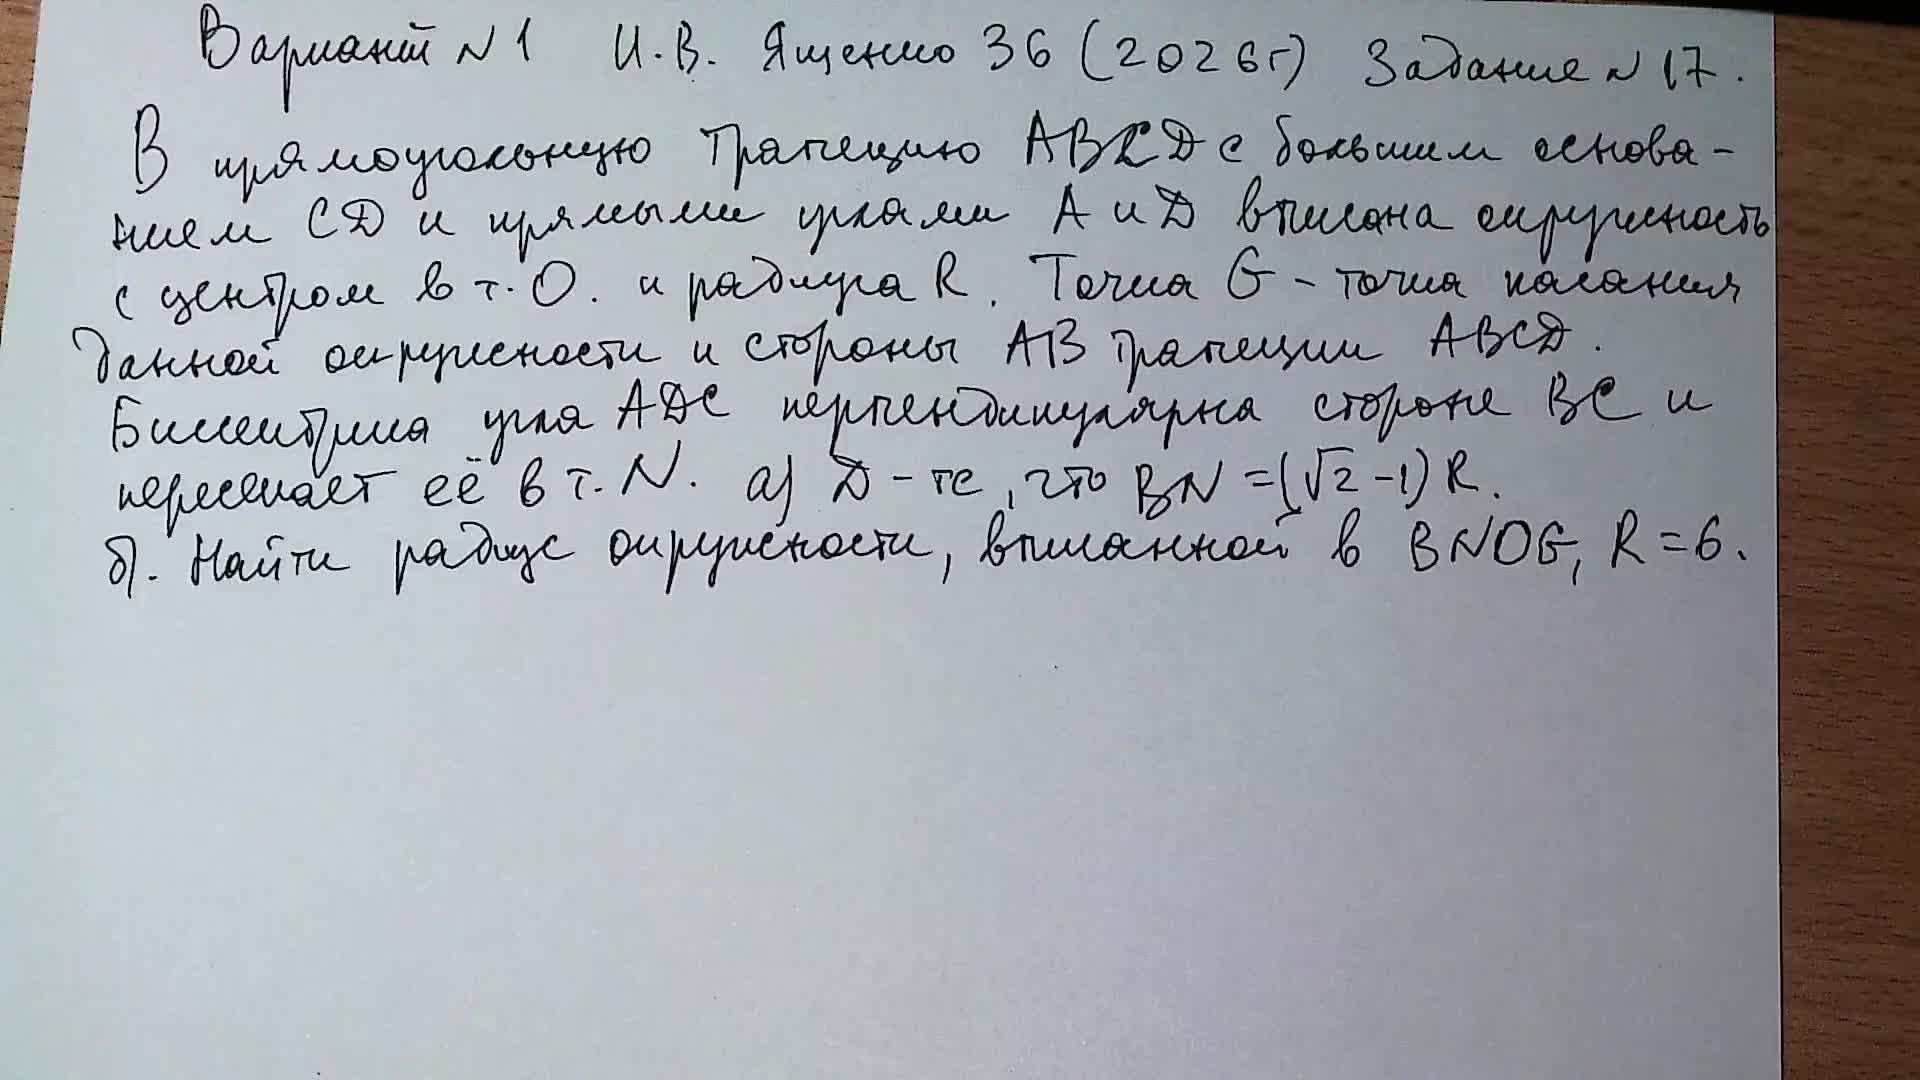 Вариант N 1 И.В. Ященко 36 (2026г) Задание N 17.
В прямоугольную трапецию ABCD с большим основа-
нием CD и прямыми углами A и D вписана окружность
с центром в т. O. и радиуса R. Точка G - точка касания
данной окружности и стороны AB трапеции ABCD.
Биссектриса угла ADC перпендикулярна стороне BC и
пересекает её в т. N. а) Д-те, что BN = (√2 - 1) R.
б). Найти радиус окружности, вписанной в BNOG, R = 6.